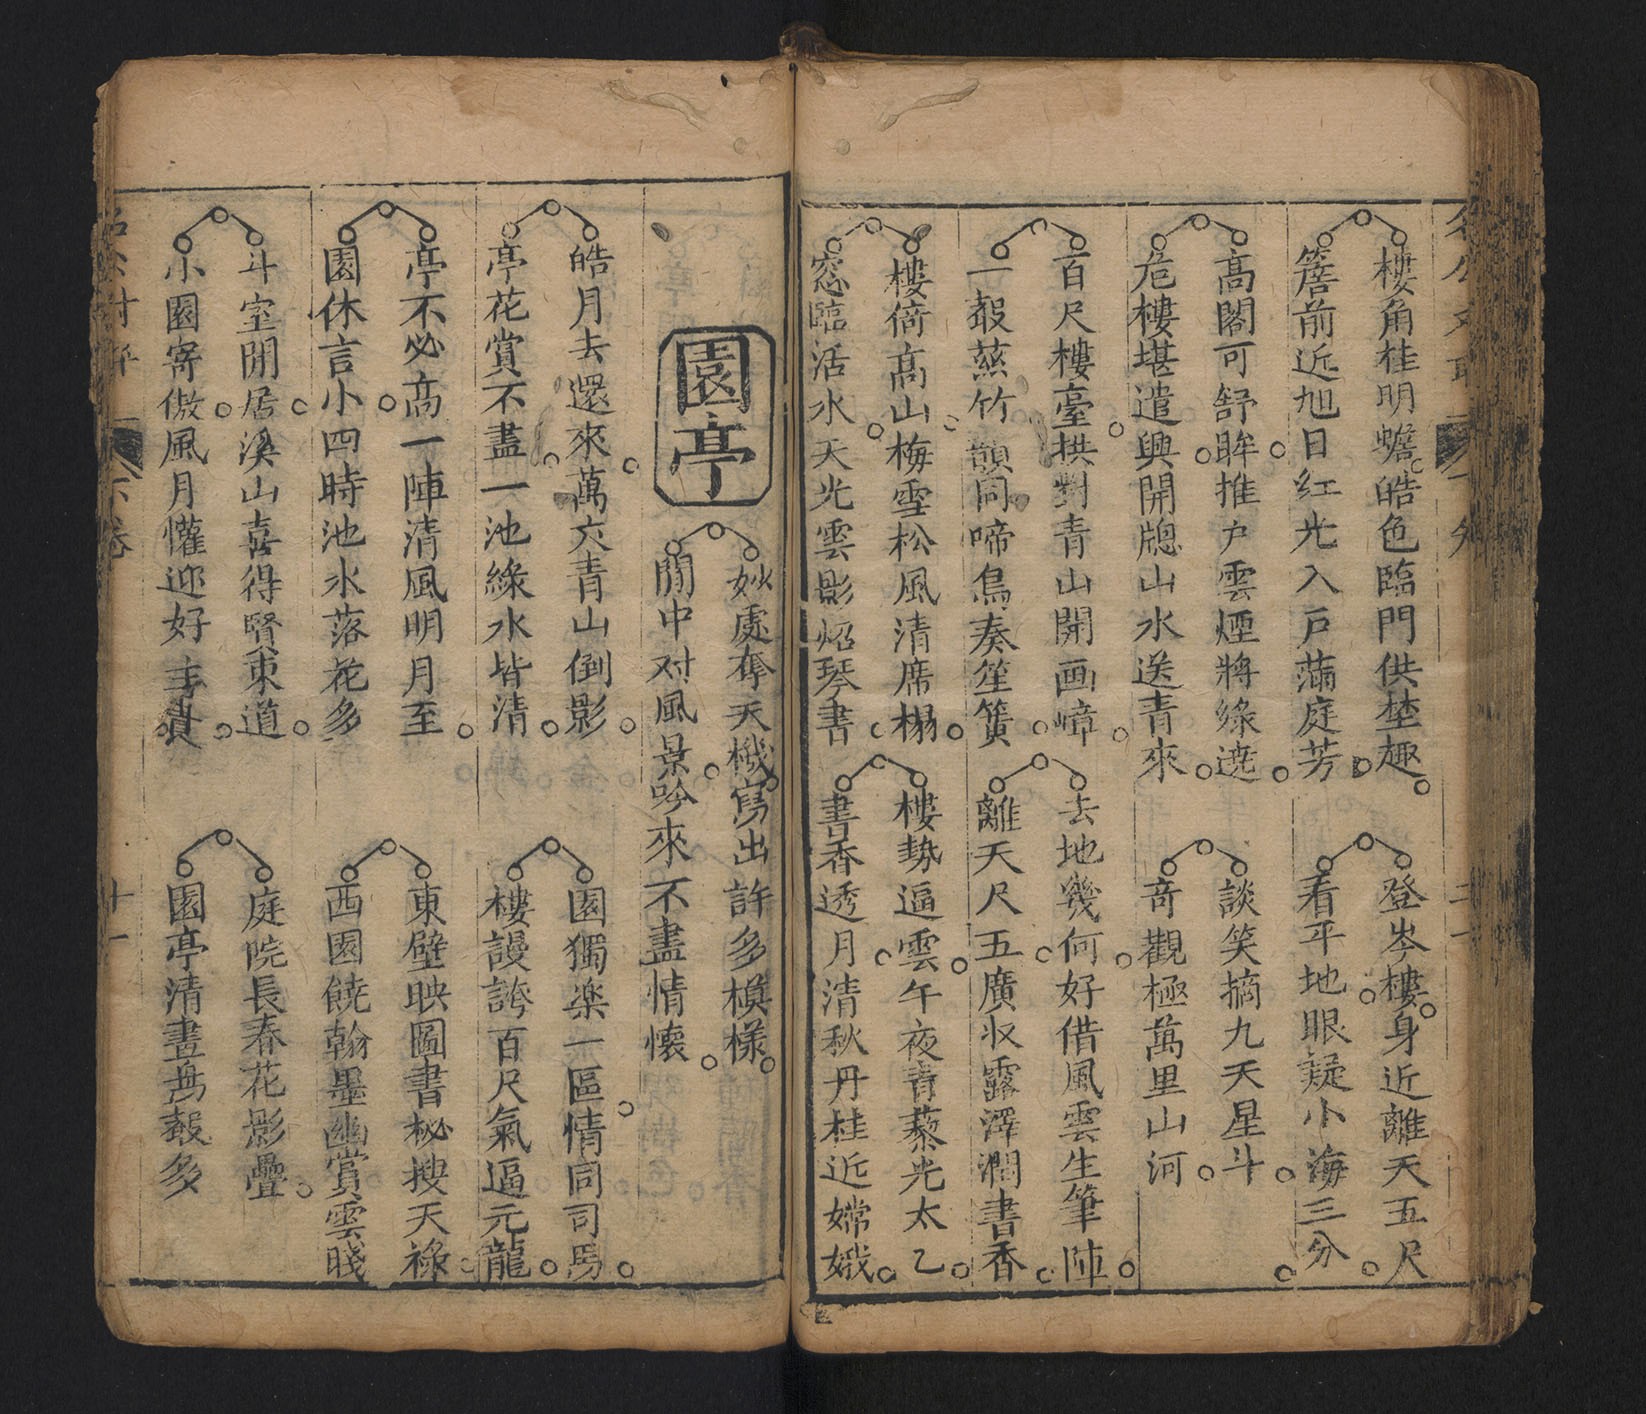 樓角桂明蟾皓色臨門供埜趣
簷前近旭日紅光入戸蒲庭芳
登岑樓身近離天五尺
看平地眼疑小海三分
高閣可舒眸推户雲煙將綠遶
危樓堪遣興開牕山水送青來
談笑摘九天星斗
奇觀極萬里山河
百尺樓臺拱對青山開画嶂
一㲈蒸竹韻同啼鳥奏笙簧
去地幾何好借風雲生筆陣
離天尺五廣収露澤潤書香
樓倚高山梅雪松風清席榻
窓臨活水天光雲影炤琴書
樓勢逼雲午夜青藜光太乙
書香透月清秋丹桂近嫦娥
園亭
妙處奪天機寫出許多模樣
閒中对風景吟來不盡情懷
皓月去還來萬六青山倒影
亭花賞不盡一池綠水皆清
園獨楽一區情同司馬
樓謾誇百尺氣逼元龍
亭不必高一陣清風明月至
園休言小四時池水落花多
東壁映圖書秘搜天祿
西園饒翰墨幽賞雲牋
斗室閒居溪山喜得賢東道
小園寄傲風月懽迎好主賓
庭院長春花影疊
園亭清晝鳥㲈多
下卷
十一